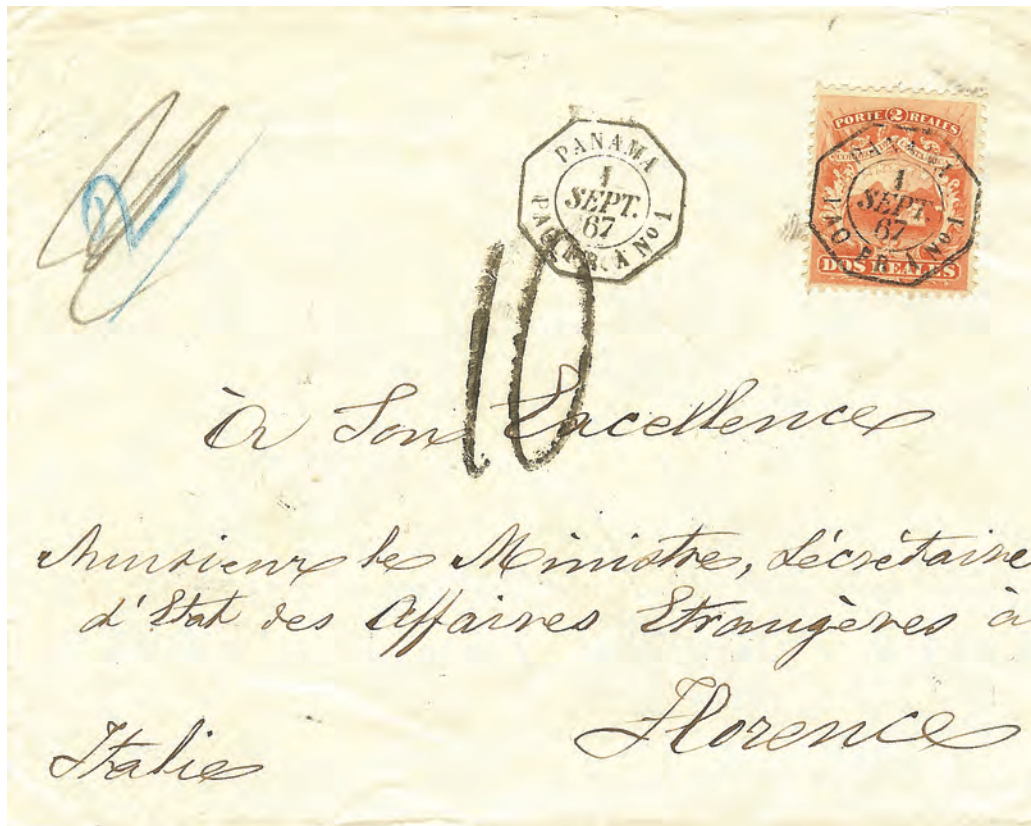 PANAMA
1
SEPT.
67
PAQ. FR. A Nº 1
PORTE 2 REALES
PANAMA
1
SEPT.
67
PAQ. FR. A Nº 1
DOS REALES
2
10
à Son Excellence
Monsieur le Ministre, Sécrétaire
d'Etat des Affaires Etrangères à
Florence
Italie